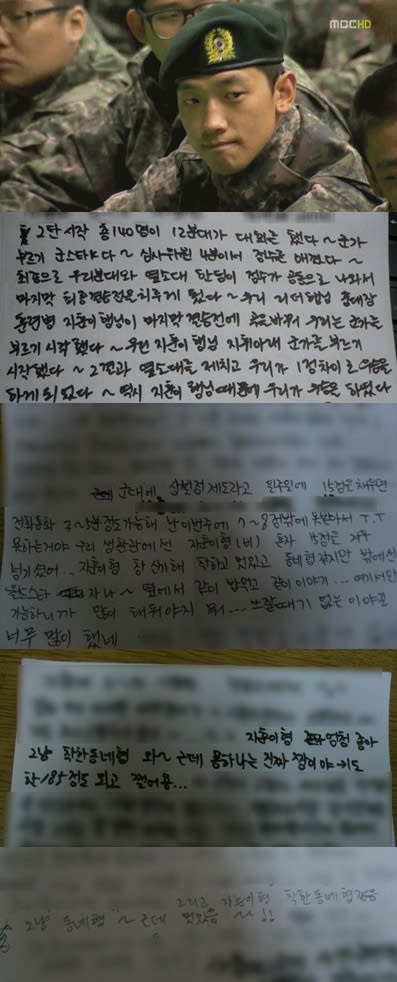 MBC HD
2탄 시작 총 140명이 12분대가 대회를 했다~ 군가
부르기 군스타K다~ 심사위원 4분이서 점수를 매겼다~
최고로 우리분대와 열소대 한팀이 점수가 공동으로 나와서
마지막 최종결승전을 치루게 됐다~ 우리 리더 행님 중대장
훈련병 지훈이 행님이 마지막 결승전에 우리는 군가를
부르기 시작했다~ 우린 지훈이 행님 지휘아래 군가를 부르기
시작했다~ 2절과 옆소대를 제치고 우리가 1점차이로 우승을
하게 되었다~ 역시 지훈이 행님 때문에 우리가 우승을 하였다
군대에 상벌점제도라고 일주일에 15점을 채우면
전화통화 3~5분정도 가능해 난 이번주에 7~8점밖에 못받아서 T.T
못하는거야 우리 생활관에선 지훈이형(비) 혼자 15점을 겨우
넘기셨어... 지훈이형 참 신기해 착하고 멋있고 동네형 같지만 밖에선
월드스타 자나~ 옆에서 같이 밥먹고 같이 이야기... 여기서만
가능하니까 많이 해둬야지 뭐... 쓰잘때기 없는 이야길
너무 많이 했네
지훈이형 엄청 좋아
그냥 착한동네형 와~ 근데 몸하나는 진짜 짱이야 키도
한 185정도 되고 쩔어용...
그리고 지훈이형 착한동네형같음
그냥 동네형~ 근데 멋있음 ~~!!